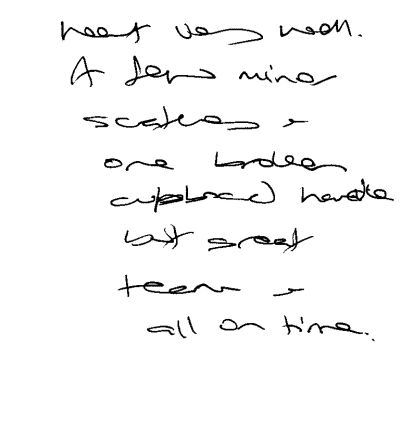 went very well.
A few minor
scratches &
one broken
cupboard handle
but great
team &
all on time.